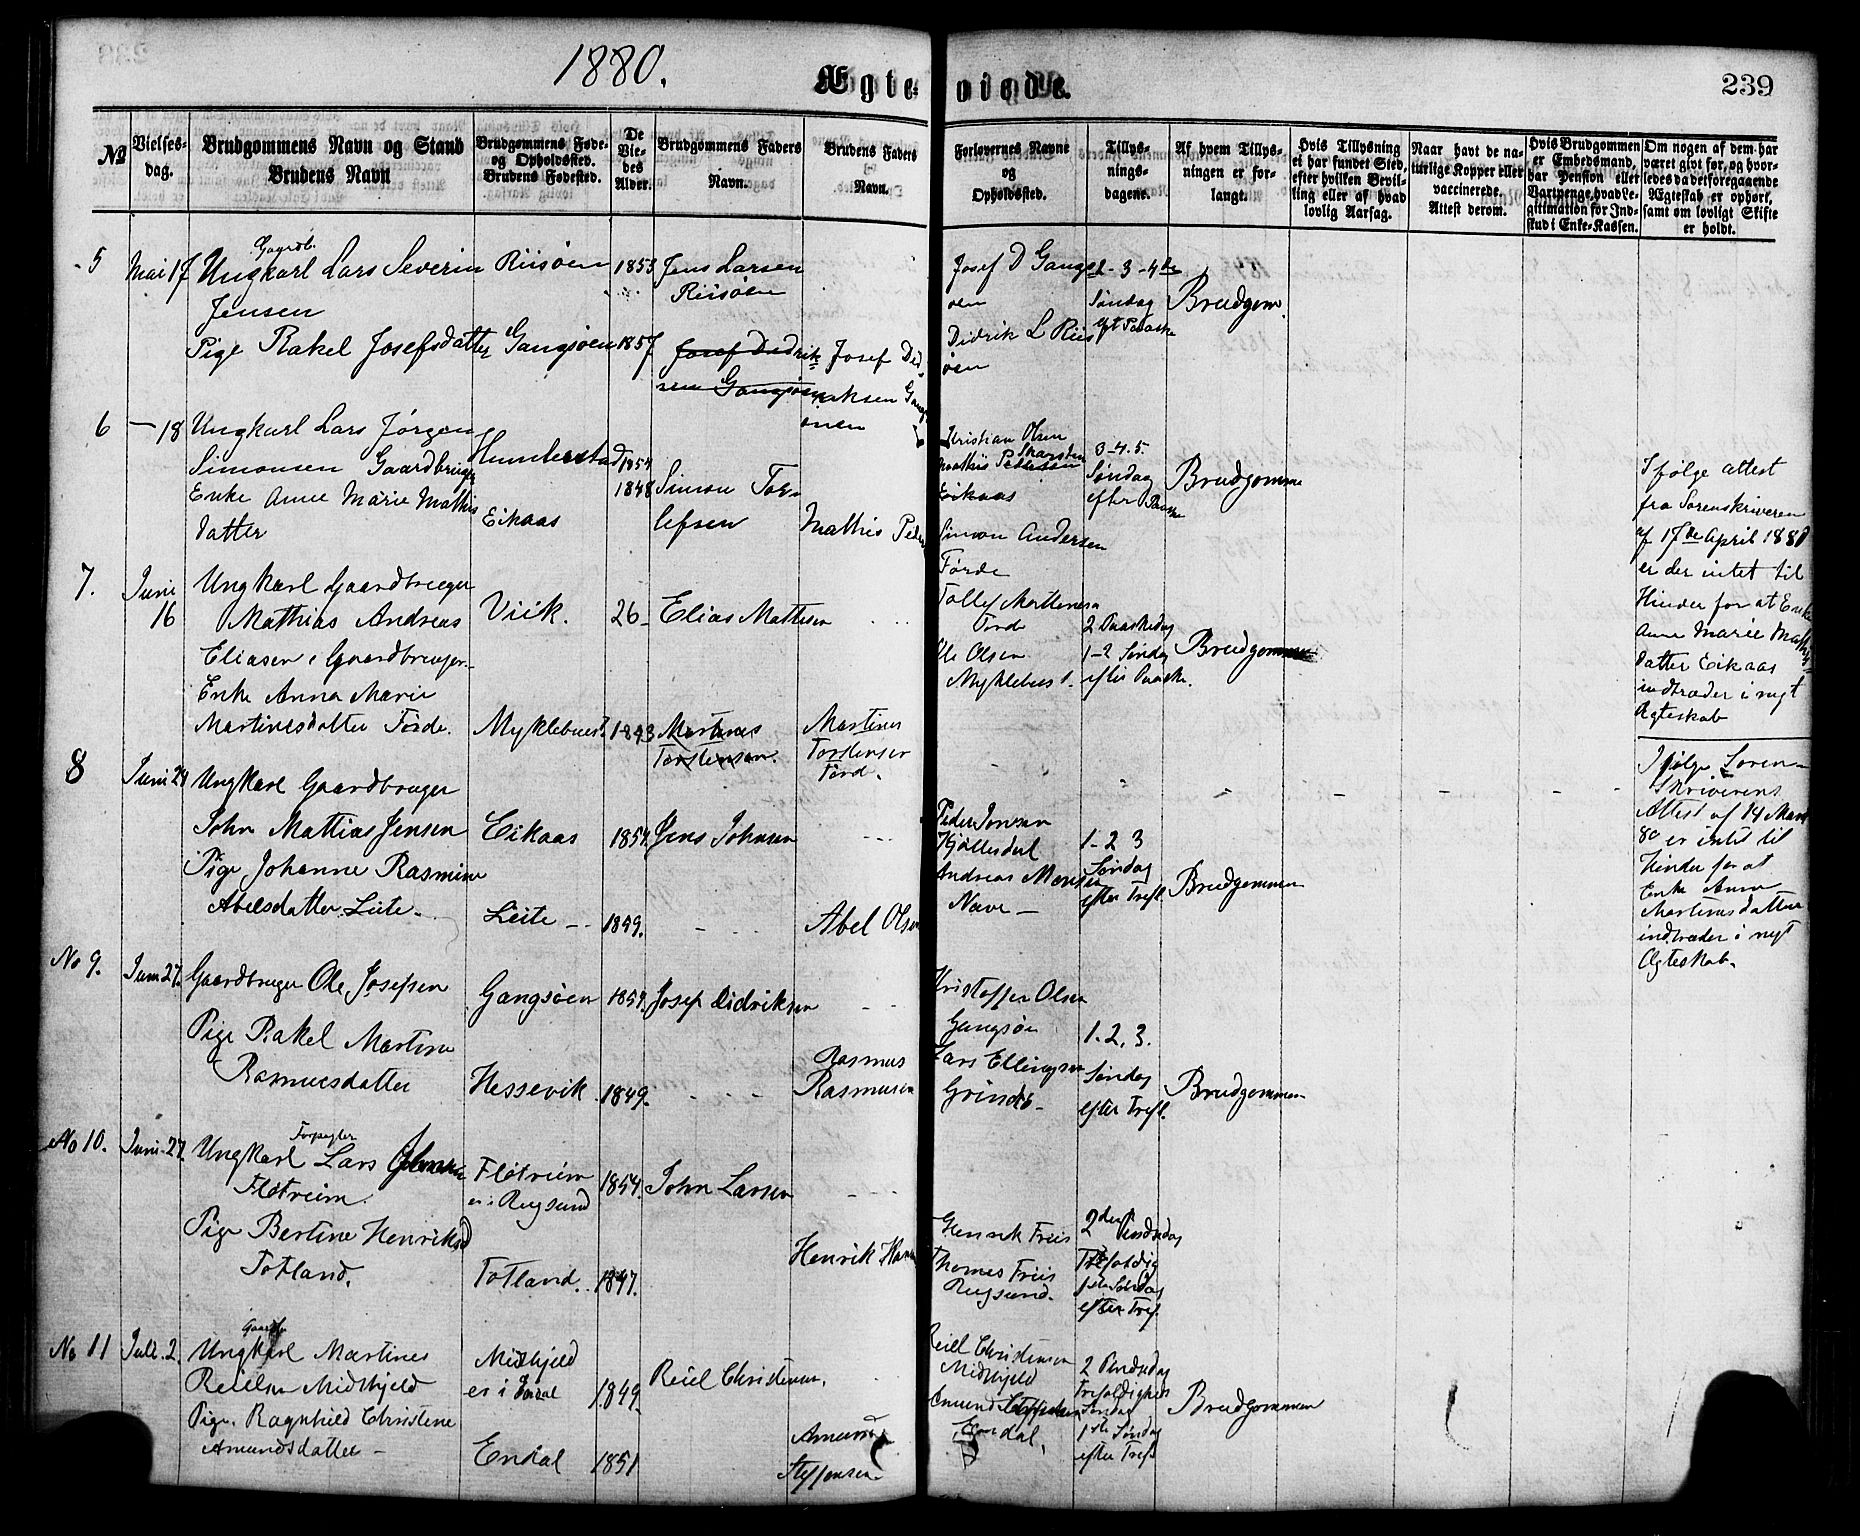 1880.
Ægteviede.
239
No
Vielses-
dag.
Brudgommens Navn og Stand
Brudens Navn
Brudgommens Føde-
og Opholdssted.
Brudens Fødested.
De
Vie-
des
Alder.
Brudgommens Faders
Navn.
Brudens Faders
Navn.
Forlovernes Navne
og
Opholdssted.
Tillys-
nings-
dagene.
Af hvem Tillys-
ningen er for-
langt.
Hvis Tillysning
ei har fundet Sted,
efter hvilken Bevil-
ling eller af hvad
lovlig Aarsag.
Naar havt de na-
turlige Kopper eller
vaccinerede.
Attest derom.
Hvis Brudgommen
er Embedsmand,
har Pension eller
Vartpenge, hvad Le-
gitimation for Ind-
skud i Enke-Kassen.
Om nogen af dem har
været givt før, og hvor-
ledes da det foregaaende
Ægteskab er ophørt,
samt om lovligt Skifte
er holdt.
5
Mai 17
Gaardb.
Ungkarl Lars Severin
Jensen
Pige Rakel Josefsdatter
Riisøen
Gangsøen
1853
1857
Jens Larsen
Riisøen
Josef Didrik
sen Gangsøen
Josef Did
riksen Gangs
øen
Josef D Gangs
øen
Didrik L Riis
øen
2 - 3 - 4de
Søndag
eft Paaske
Brudgom.
6
— 18
Ungkarl Lars Jørgen
Simonsen Gaardbruger
Enke Anne Marie Mathis
datter
Humlestad
Eikaas
1854
1848
Simon Tor-
lefsen
Mathis Peder
Kristian Olsen
Mathis Pedersen
Eikaas
Simon Andersen
Førde
3-4.5.
Søndag
efter Paaske
Brudgomme
Ifølge attest
fra Sorenskriveren
af 17de April 1880
er der intet til
Hinder for at Enke
Anne Marie Mathis
datter Eikaas
indtræder i nyt
Ægteskab
7.
Juni
16
Ungkarl Gaardbruger
Mathias Andreas
Eliasen, Gaardbruger.
Enke Anna Marie
Martinesdatter Førde.
Viik.
Myklebust.
26
1843
Elias Mathisen
Martines
Torstensen.
Martines
Torstensen
Førd.
Tollef Mortensen
Førde
Ole Olsen
Myklebust.
2 Paaskedag
1-2 Søndag
efter Paaske.
Brudgommen
Ifølge Soren-
skriverens
Attest af 14 Marts
80 er intet til
Hinder for at
Enke Anne
Martinusdatter
indtræder i nyt
Ægteskab.
8
Juni 24
Ungkarl Gaardbruger
John Mathias Jensen
Pige Johanne Rasmine
Abelsdatter Leite.
Eikaas
Leite
1854.
1859.
Jens Johnsen
Abel Olsen
Peder Jonsen
Hjøllesdal
Andreas Monsen
Nave
1-2 3
Søndag
efter Tref.
Brudgommen
No 9.
Juni 27.
Gaardbruger Ole Josefsen
Pige Rakel Martine
Rasmusdatter
Gangsøen
Hessevik
1859.
1849.
Josef Didriksen
Rasmus
Rasmusen
Kristoffer Olsen
Gangsøen
Lars Ellingsen
Grindø
1. 2. 3.
Søndag
efter Tref.
Brudgommen
No 10.
Juni 27.
Ungkarl Lars
Fløtreim
Pige Bertine Henriksd
Totland.
Fløtreim
er i Rugsund
Totland.
1854.
1847.
John Larsen
Henrik Hansen
Henrik Friis
Thomas Friis
Rugsund.
2den Pindsedag
Trefoldig
1ste Søndag
efter Tref.
No 11
Juli 2.
Gaardb
Ungkarl Martines
Reielsen Midthjeld
Pige Ragnhild Christene
Amundsdatter
Midthjeld
er i Endal
Endal
1849.
1851
Reiel Christensen.
Amund
Steffensen
Reiel Christensen
Midthjeld
Amund Steffensen
Endal.
2 Pindsedag
Trefoldigheds
Søndag
1ste Søndag
efter Tref
Brudgommen